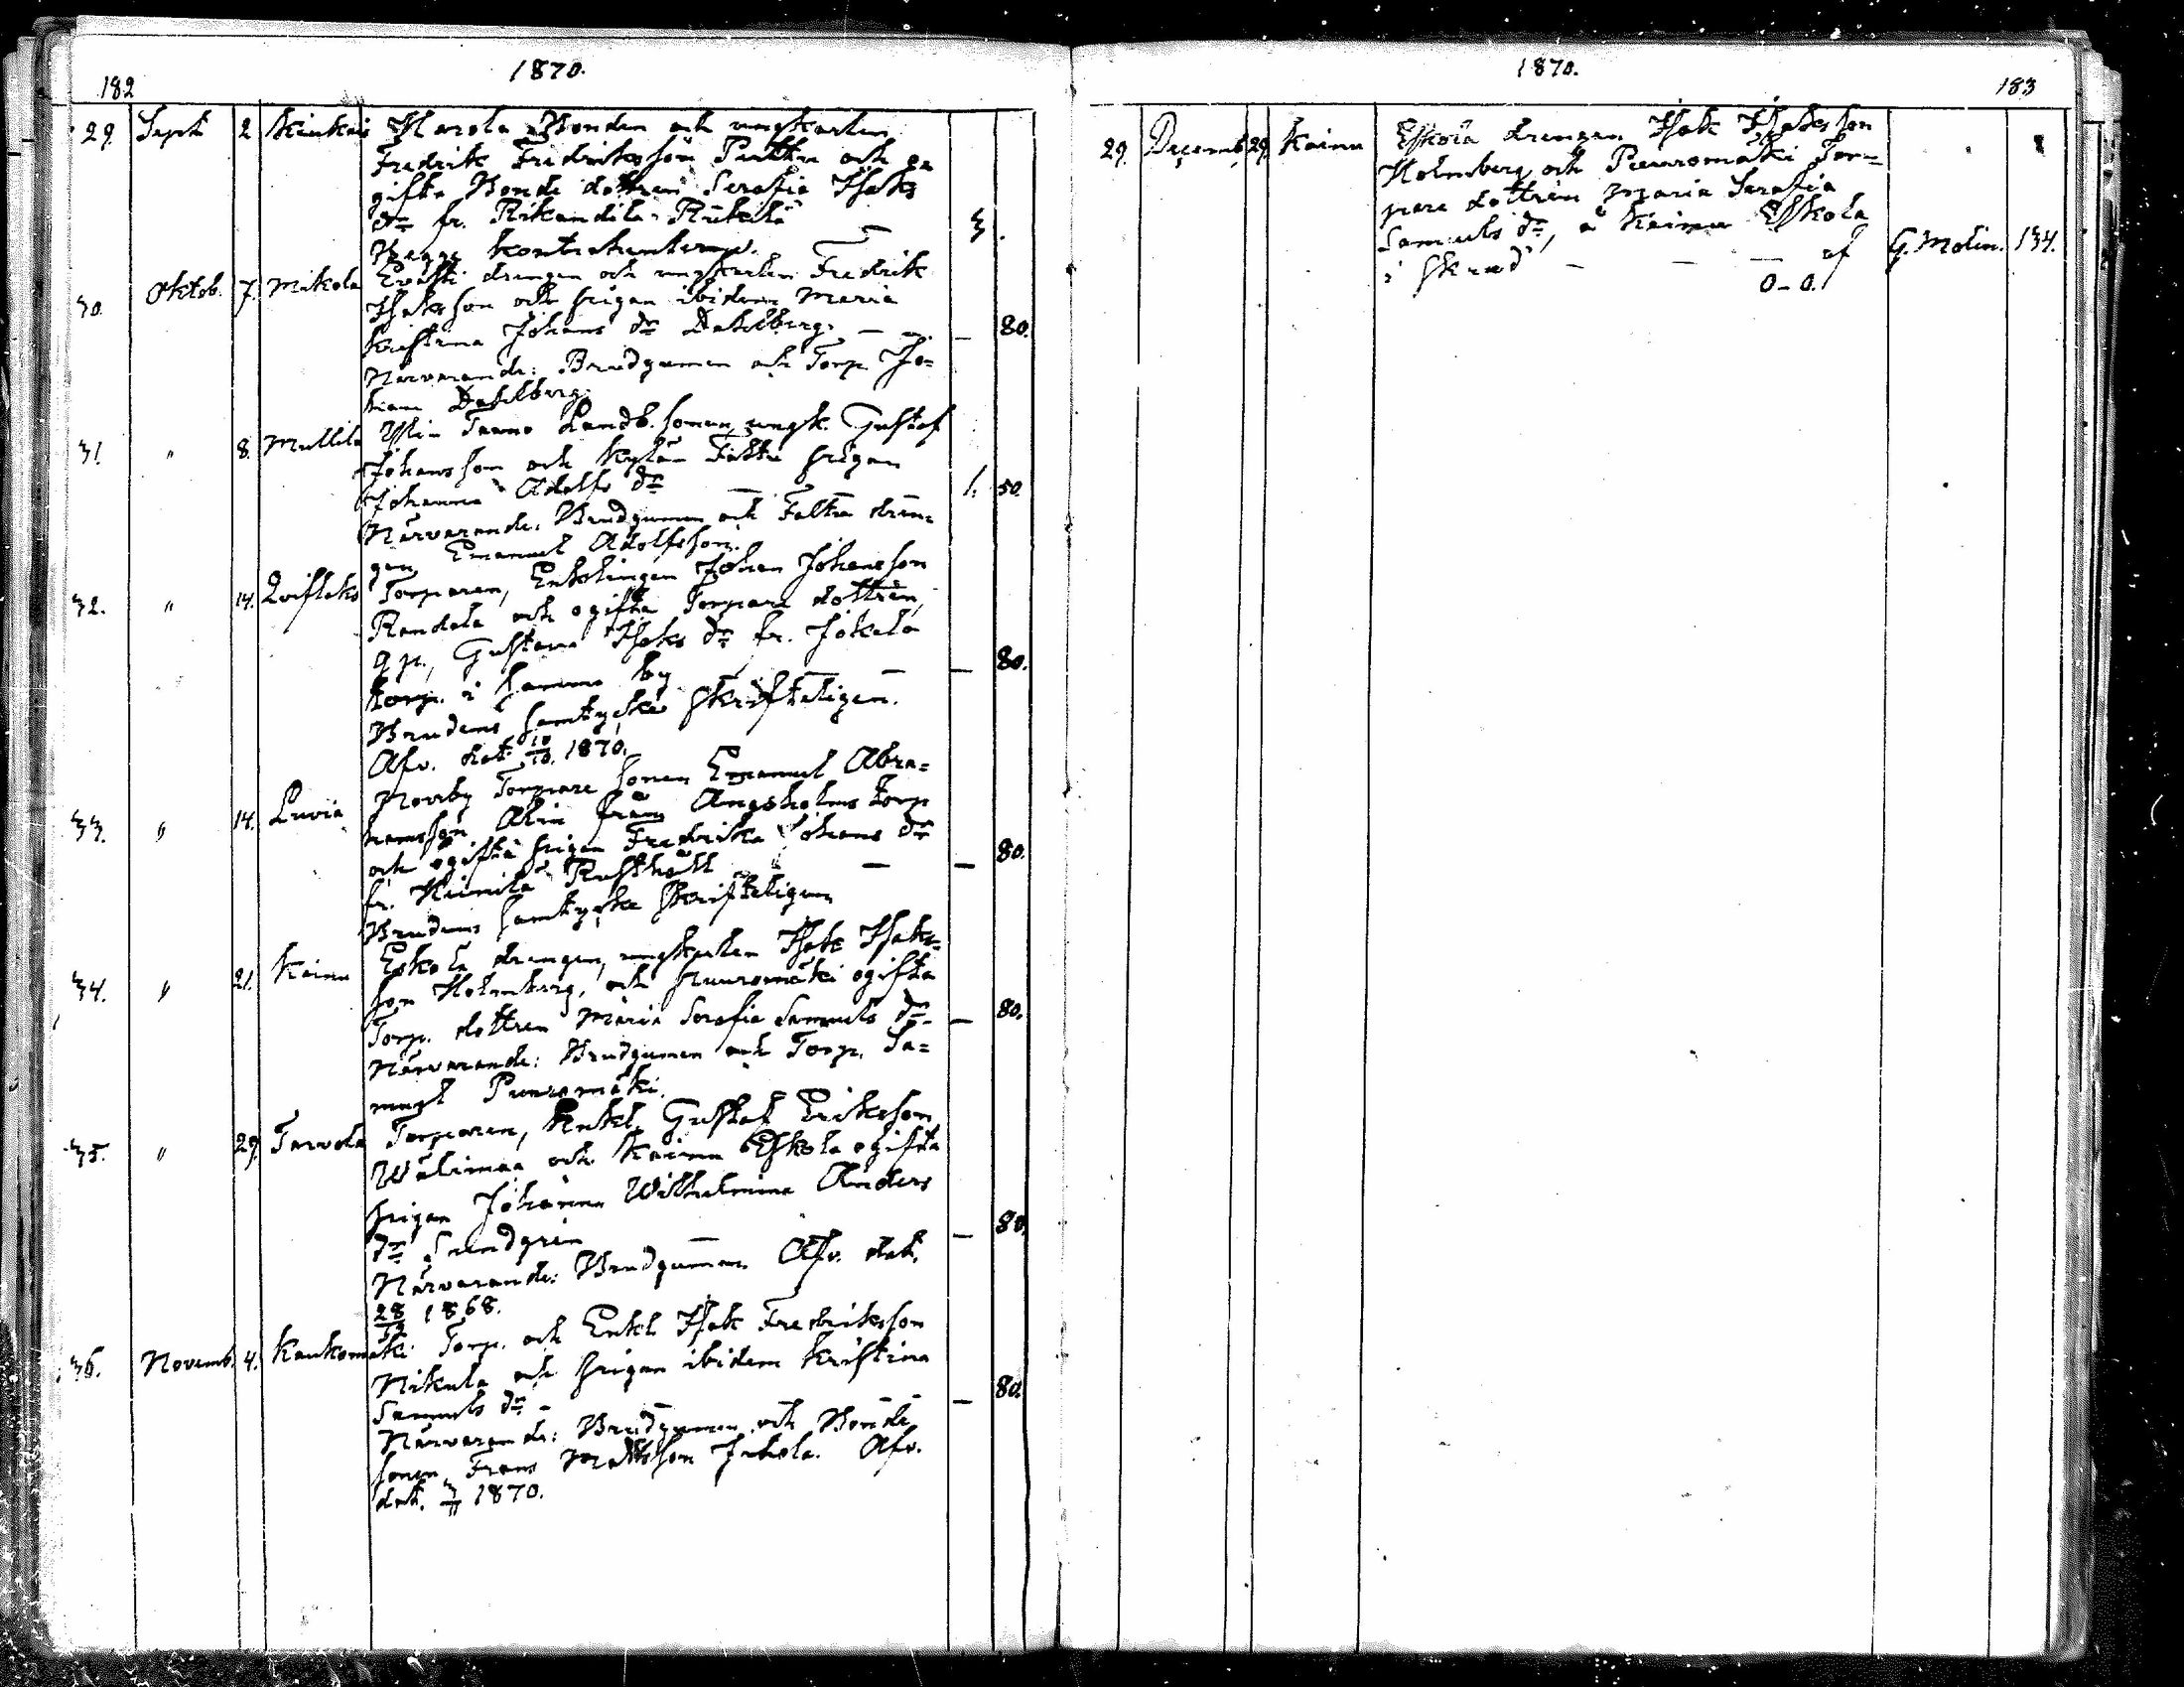 182 1870.
29. Sept 2 Kiukais Harola Bonden och ungkarlen
Fredrik Fredriksson Puttu och o=
gifta Bonde dottren Serafia Isaks
dr fr. Rikandila Rukola 3.
Begge kontrahenterne.
30. Oktob. 7. Mikola Evasti drengen och ungkarlen Fredrik
Isaksson och pigan ibidem Maria
Kristina Johans dr Dahlberg. — — 80.
Närvarande: Brudgumen och Torp. Jo=
han Dahlberg.
31. " 8. Mullila Yli Tanno Landb. sonen, ungk. Gustaf
Johansson och Kylän Fältti pigan
Johanna Adolfs dr — — 1. 50.
Närvarande: Brudgumen och Faltti dren=
gen Emanuel Adolfsson.
32. " 14. Torparen, Enklingen Johan Johansson
Randala och ogifta Torpare dottren,
q p., Gustava Isaks dr fr. Jokela
torp. i samma by — — 80.
Brudens samtycke skrifteligen.
Afv. dat. 10/10. 1870.
33. " 14. Luvia Norrby Torpare sonen Emanuel Abra=
hamsson Alin från Angsholms torp
och ogifta pigan Fredrika Johans dr
fr. Heinilä Rusthåll — — 80.
Brudens samtycke skrifteligen
34. " 21. Kainu Eskola drengen, ungkarlen Isak Isaks=
son Holmberg, och Puuromäki ogifta
Torp. dottren Maria Serafia Samuels dr. — 80.
Närvarande: Brudgumen och Torp. Sa=
muel Puuromäki.
35. " 29. Tarvola Torparen, Enkl. Gustaf Eriksson
Wälimaa och Kainu Eskola ogifta
pigan Johanna Wilhelmina Anders
dr Sundgrén — — 80.
Närvarande: Brudgumen Afv. dat.
28/12 1868.
36. Novemb. 4. Kaukomäki Torp. och Enkl. Isak Fredriksson
Nikula och pigan ibidem Kristina
Samuels dr — — — 80.
Närvarande: Brudgumen och Bonde
sonen Frans Mattsson Juhola. Afv.
dat. 3/11 1870.
1870. 183
29. Decemb. 29. Kainu Eskola drengen Isak Isaksson
Holmberg och Puuromäki Tor=
pare dottren Maria Serafia
Samuels dr, å Kainu Eskola
i Skrud — — — af G. Molin. 134.
0-0.